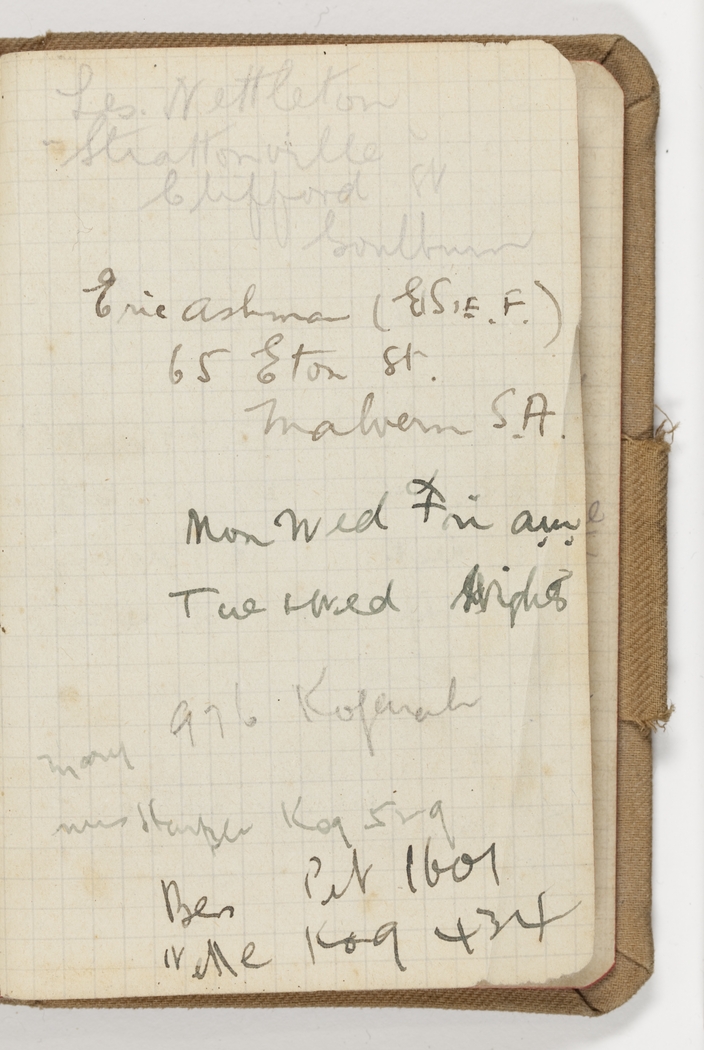 Les. Nettleton
"Strattonville"
Clifford St
Goulburn
Eric Ashman (E.S. & F.)
65 Eton St.
Malvern S.A.
Mon Wed Fri am
Tue & Wed Nights
976 Kogarah
Mary
Mrs Kog 529
Ben Pet 1601
Nelle Kog 434